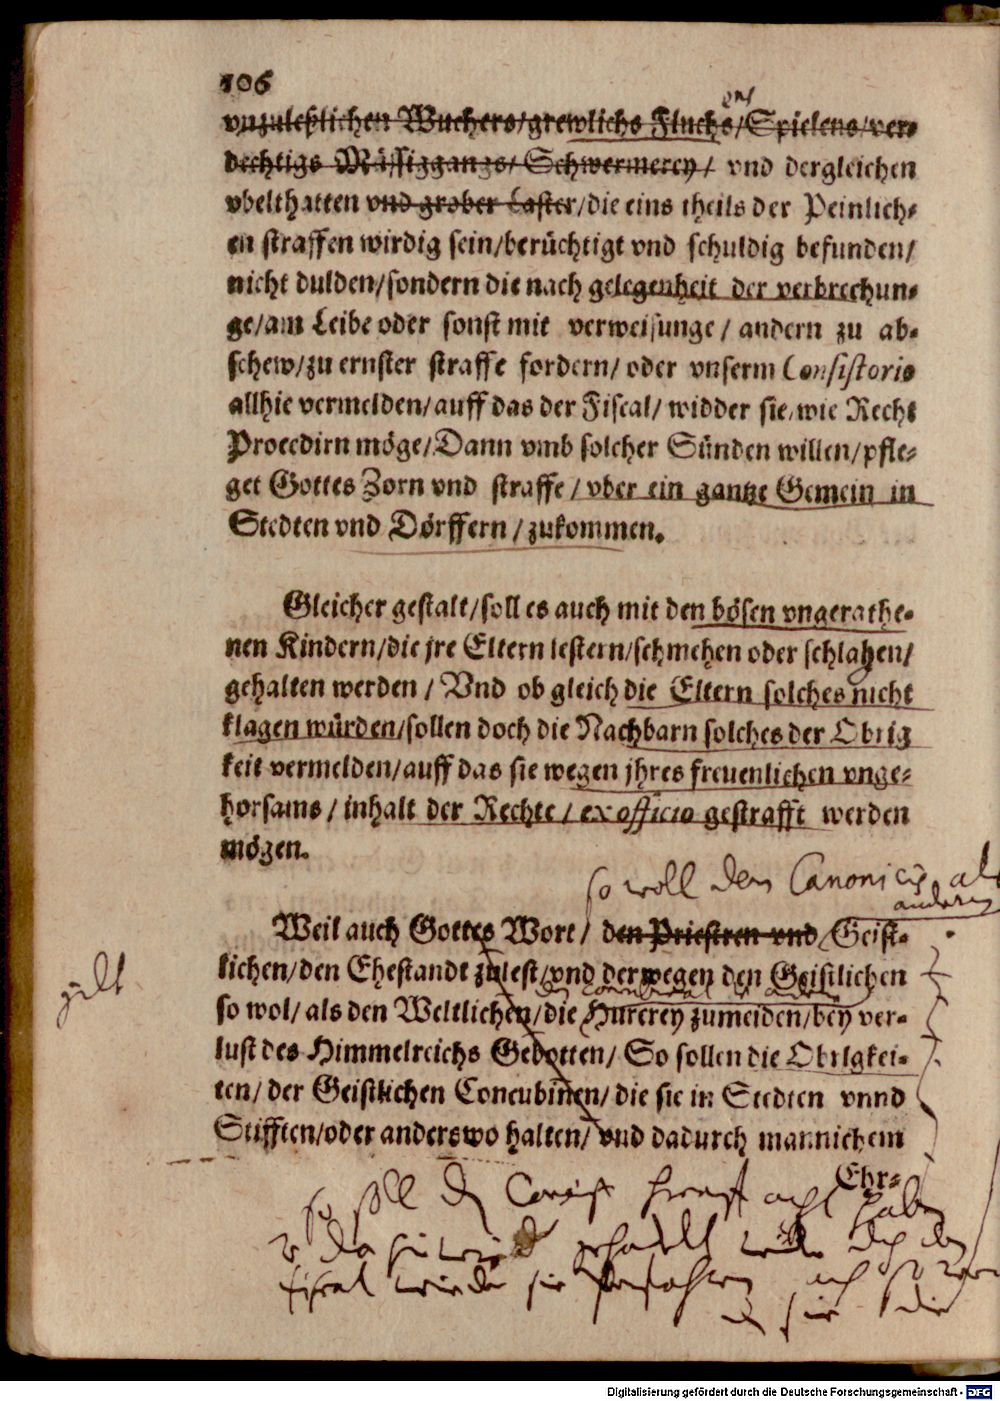 106
vnzuleßlichen Wuchers/grewlichs Fluchs/Spielens/ver-
dechtigs Müssigganges/Schwermerey/ vnd dergleichen
vbelthatten vnd grober Laster/die eins theils der Peinlich-
en straffen wirdig sein/berüchtigt vnd schuldig befunden/
nicht dulden/sondern die nach gelegenheit der verbrechun-
ge/am Leibe oder sonst mit verweisunge / andern zu ab-
schew/zu ernster straffe fordern/ oder vnserm Consistorio
allhie vermelden/auff das der Fiscal/ widder sie/wie Recht
Procedirn möge/Dann vmb solcher Sünden willen/pfle-
get Gottes Zorn vnd straffe / vber ein gantze Gemein in
Stedten vnd Dörffern / zukommen.
Gleicher gestalt/soll es auch mit den bösen vngerathe-
nen Kindern/die jre Eltern lestern/schmehen oder schlahen/
gehalten werden / Vnd ob gleich die Eltern solches nicht
klagen würden/sollen doch die Nachbarn solches der Obrig
keit vermelden/auff das sie wegen jhres freuenlichen vnge-
horsams / inhalt der Rechte / ex officio gestrafft werden
mögen.
so woll den Canonicis als
andern
Weil auch Gottes Wort / den Priestren vnd Geist-
lichen/den Ehestandt zulest/vnd derwegen den Geistlichen
so wol/ als den Weltlichen/die Hurerey zumeiden/bey ver-
lust des Himmelreichs Gebotten/ So sollen die Obrigkei-
ten/ der Geistlichen Concubinen/ die sie in Stedten vnnd
Stifften/oder anderswo halten/ vnd dadurch mannichem
Ehr-
so soll
haben
Digitalisierung gefördert durch die Deutsche Forschungsgemeinschaft - DFG